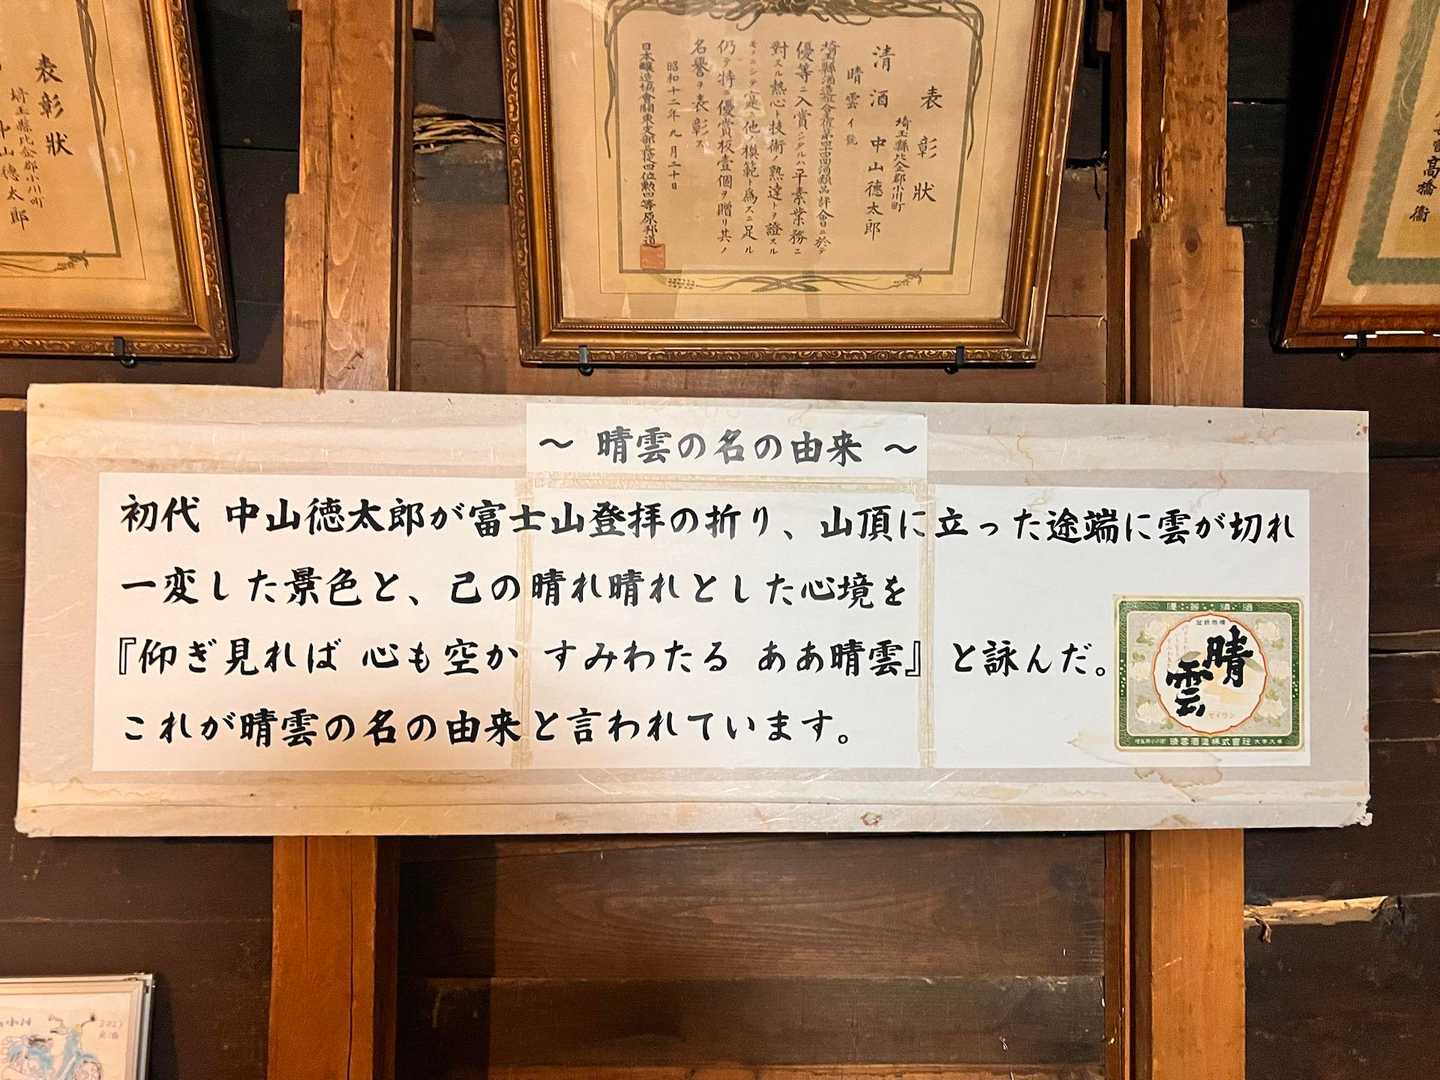 表彰狀
埼玉縣比企郡小川町
中山德太郎
表彰狀
埼玉縣比企郡小川町
清酒 中山德太郎
晴雲イ號
優等ニ入賞シタルハ平素業務ニ
對スル熱心ト技術ノ熟達トヲ證スル
モノニシテ廣ク他ノ模範ト爲スニ足ル
仍テ特ニ優賞板壹個ヲ贈リ其ノ
名譽ヲ表彰ス
昭和十二年九月二十日
高橋衞
～ 晴雲の名の由来 ～
初代 中山徳太郎が富士山登拝の折り、山頂に立った途端に雲が切れ
一変した景色と、己の晴れ晴れとした心境を
『仰ぎ見れば 心も空か すみわたる ああ晴雲』と詠んだ。
これが晴雲の名の由来と言われています。
優等清酒
登録商標
晴雲
セイウン
晴雲酒造株式會社